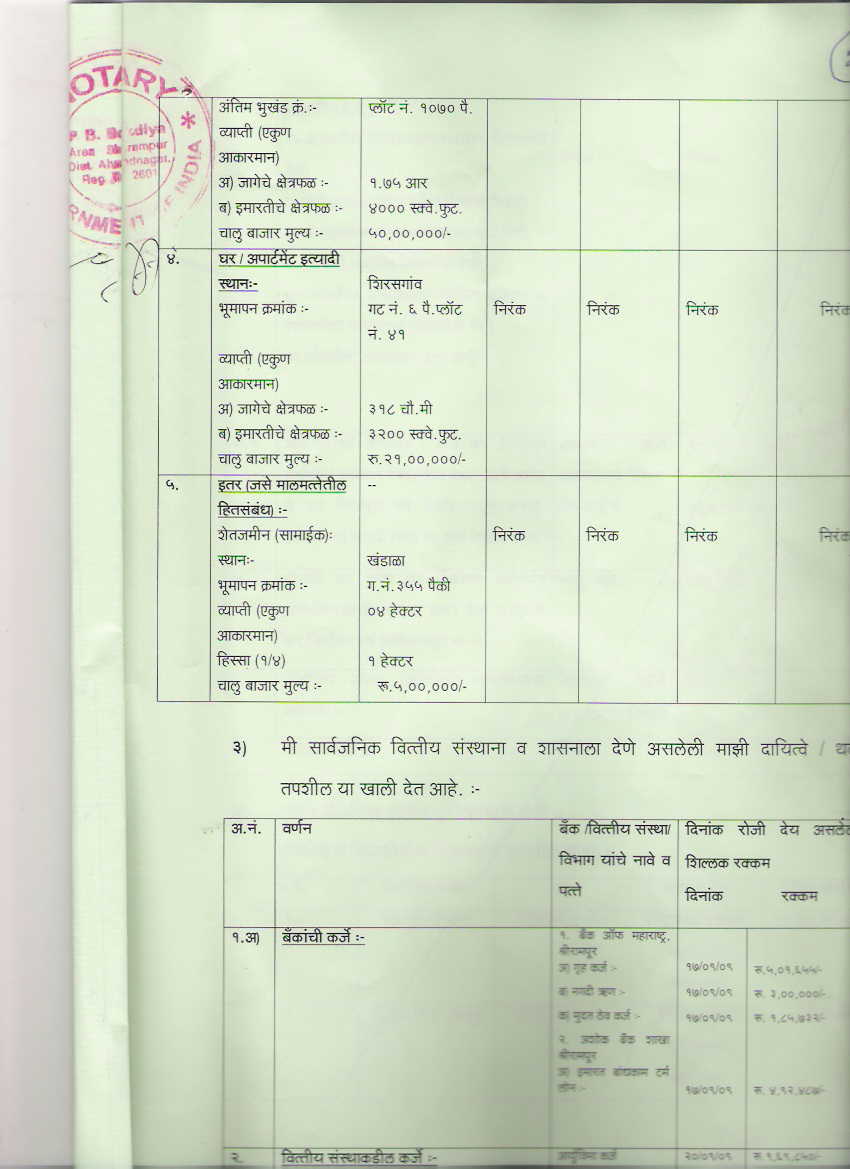 NOTARY
P. B.
Area
Dist.
Reg. 2601
INDIA
अंतिम भुखंड क्रं.:- प्लॉट नं. १०७० पै.
व्याप्ती (एकुण
आकारमान)
अ) जागेचे क्षेत्रफळ :- १.७५ आर
ब) इमारतीचे क्षेत्रफळ :- ४००० स्क्वे.फुट.
चालु बाजार मुल्य :- ५०,००,०००/-
४. घर / अपार्टमेंट इत्यादी
स्थानः- शिरसगांव
भूमापन क्रमांक :- गट नं. ६ पै.प्लॉट निरंक निरंक निरंक निरंक
नं. ४१
व्याप्ती (एकुण
आकारमान)
अ) जागेचे क्षेत्रफळ :- ३१८ चौ.मी
ब) इमारतीचे क्षेत्रफळ :- ३२०० स्क्वे.फुट.
चालु बाजार मुल्य :- रु.२१,००,०००/-
५. इतर (जसे मालमत्तेतील --
हितसंबंध) :-
शेतजमीन (सामाईक): निरंक निरंक निरंक निरंक
स्थानः- खंडाळा
भूमापन क्रमांक :- ग.नं.३५५ पैकी
व्याप्ती (एकुण ०४ हेक्टर
आकारमान)
हिस्सा (१/४) १ हेक्टर
चालु बाजार मुल्य :- रू.५,००,०००/-
३) मी सार्वजनिक वित्तीय संस्थाना व शासनाला देणे असलेली माझी दायित्वे /
तपशील या खाली देत आहे. :-
अ.नं. वर्णन बँक /वित्तीय संस्था/ दिनांक रोजी देय असलेल
विभाग यांचे नावे व शिल्लक रक्कम
पत्ते दिनांक रक्कम
१.अ) बँकांची कर्जे :- १. बँक ऑफ महाराष्ट्र,
श्रीरामपूर
अ) गृह कर्ज :- १७/०९/०९ रू.५,०१,६५५/-
ब) नगदी ऋण :- १७/०९/०९ रू. ३,००,०००/-
क) मुदत ठेव कर्ज :- १७/०९/०९ रू. १,८५,७३२/-
२. अशोक बँक शाखा
श्रीरामपूर
अ) इमारत बांधकाम टर्म
लोन :- १७/०९/०९ रू. ४,९२,४८७/-
२. वित्तीय संस्थाकडील कर्जे :- कर्ज २०/०९/०९